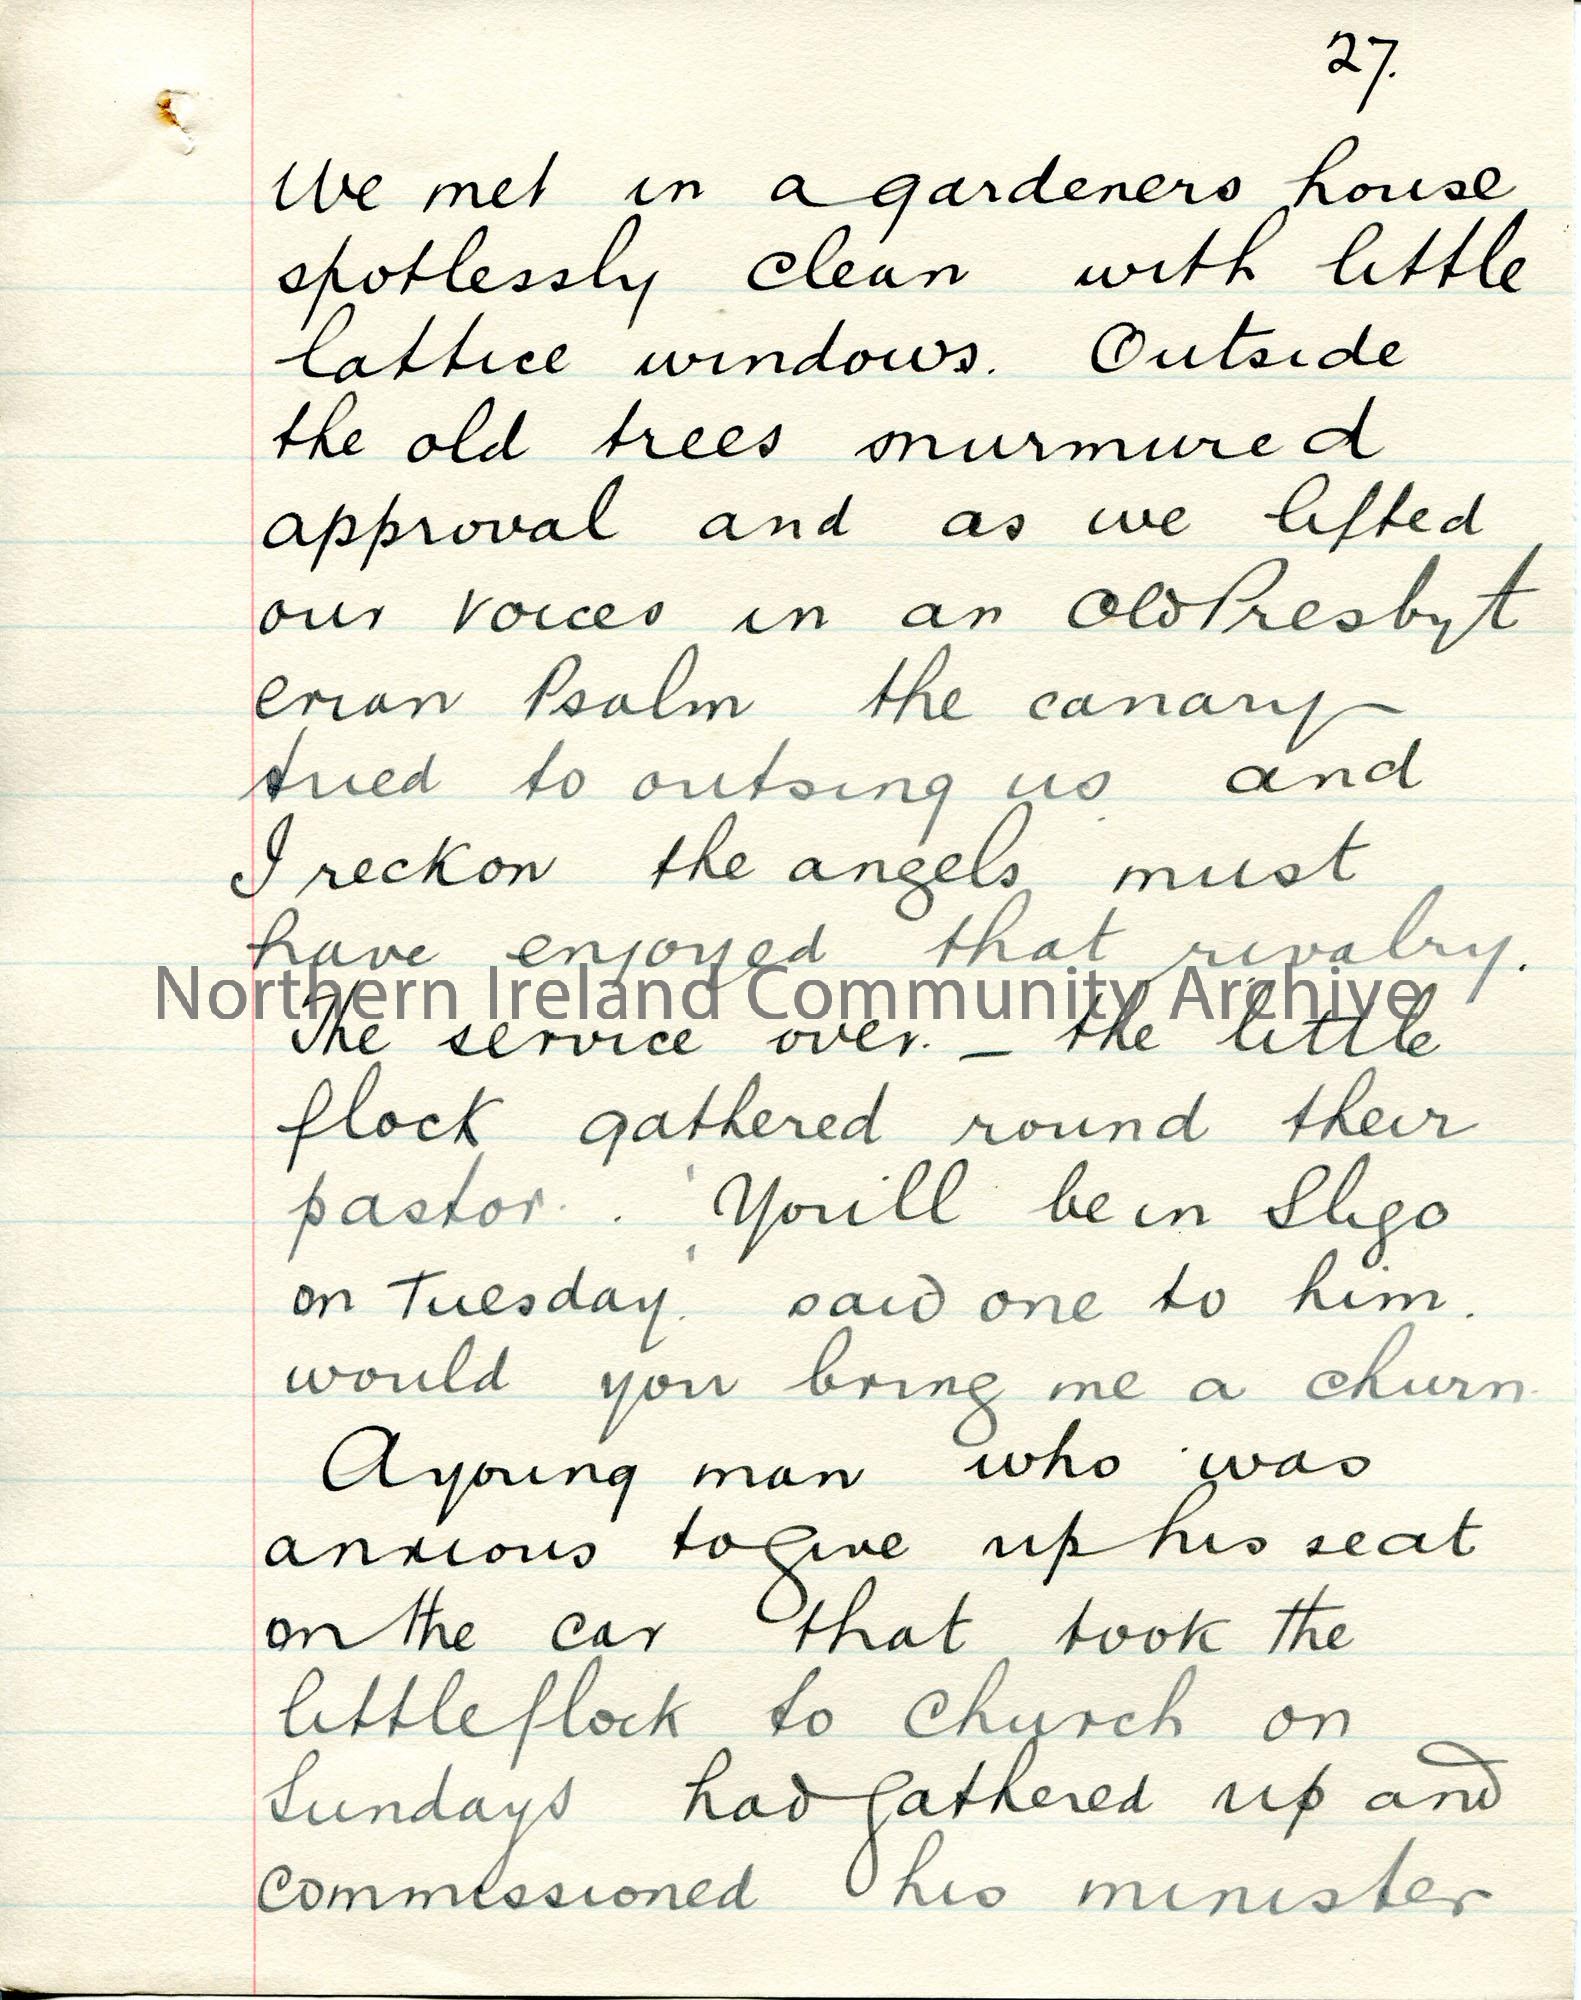 27.
We met in a gardeners house
spotlessly clean with little
lattice windows. Outside
the old trees murmured
approval and as we lifted
our voices in an Old Presbyt
erian Psalm the canary
tried to outsing us and
I reckon the angels must
have enjoyed that rivalry.
Northern Ireland Community Archive
The service over. – the little
flock gathered round their
pastor. . 'You'll be in Sligo
on Tuesday.' said one to him.
would you bring me a churn.
A young man who was
anxious to give up his seat
on the car that took the
little flock to church on
Sundays had gathered up and
commissioned his minister